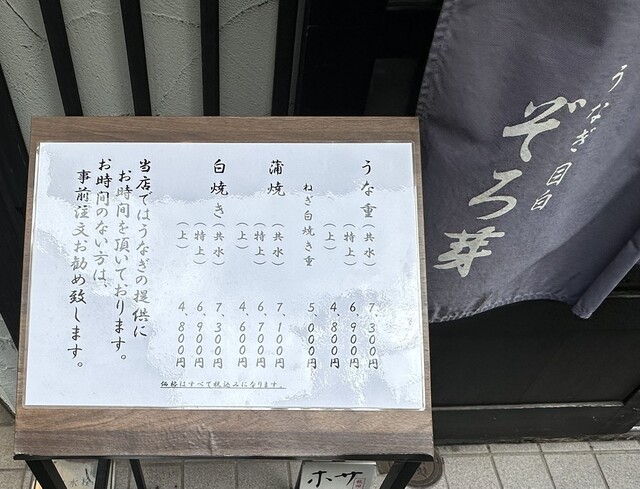 うなぎ目白
ぞろ芽
うな重(共水) 7、300円
(特上) 6、900円
(上) 4、800円
ねぎ白焼き重 5、000円
蒲焼(共水) 7、100円
(特上) 6、700円
(上) 4、600円
白焼き(共水) 7、300円
(特上) 6、900円
(上) 4、800円
当店ではうなぎの提供に
お時間を頂いております。
お時間のない方は、
事前注文お勧め致します。
価格はすべて税込みになります。
ホサ